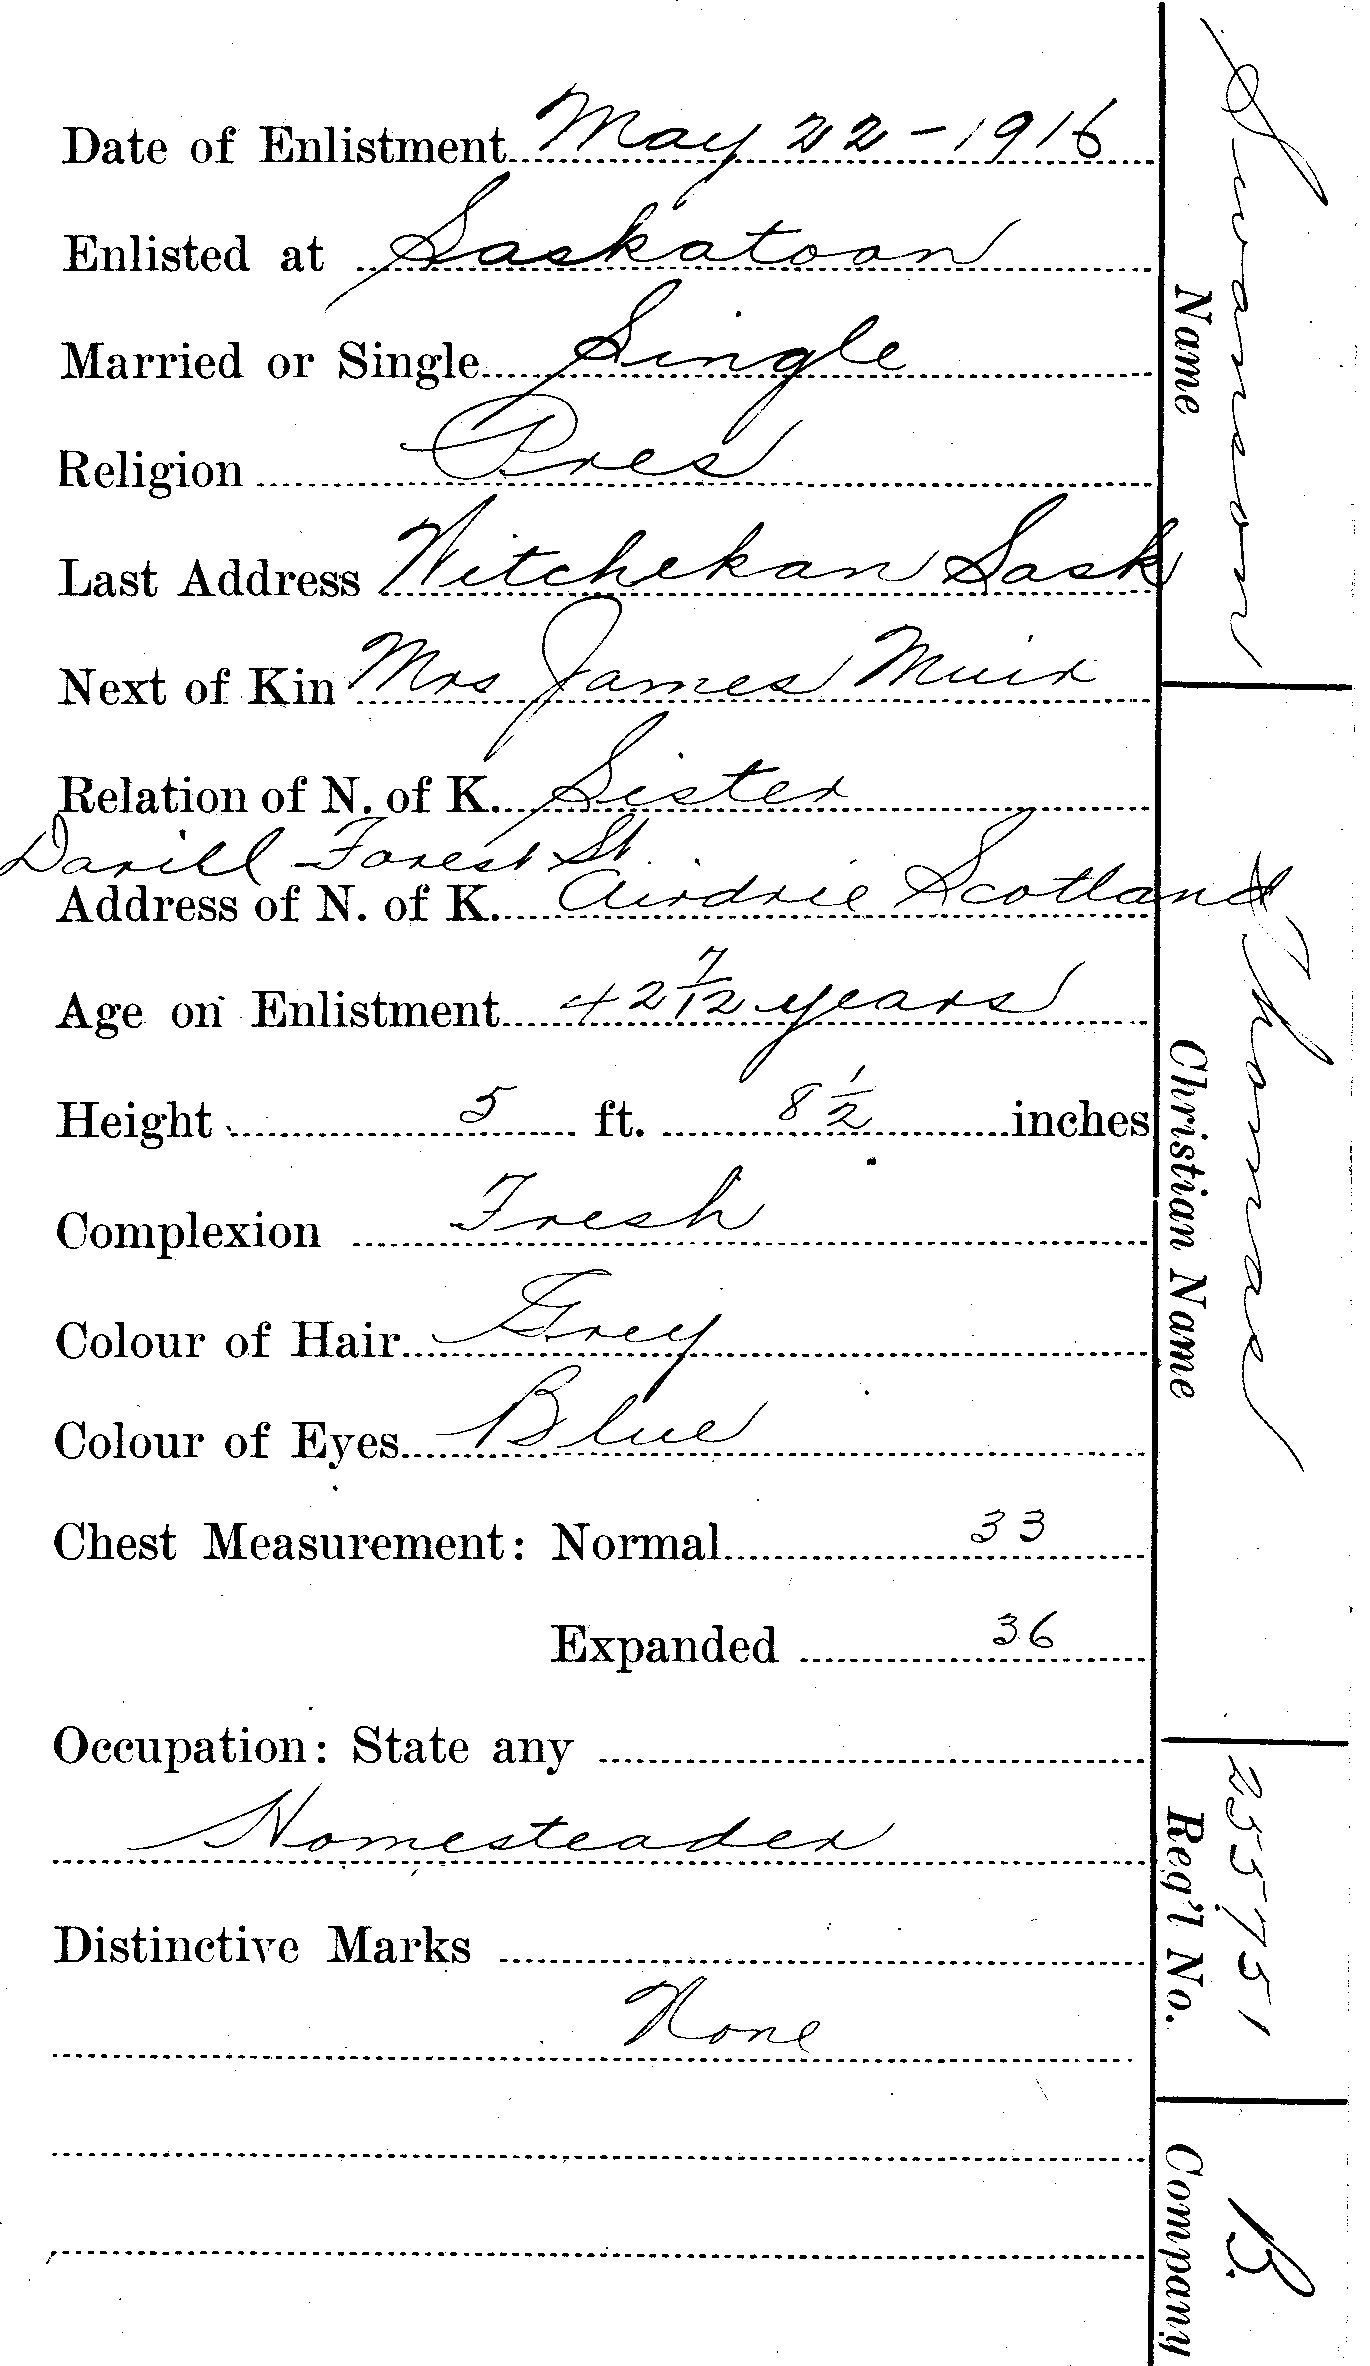 Date of Enlistment May 22 - 1916
Enlisted at Saskatoon
Married or Single Single
Religion Pres
Last Address Witchekan Sask
Next of Kin Mrs James Muir
Relation of N. of K. Sister
Forest St
Address of N. of K. Airdrie Scotland
Age on Enlistment 42 7/12 years
Height 5 ft. 8 1/2 inches
Complexion Fresh
Colour of Hair Grey
Colour of Eyes Blue
Chest Measurement: Normal 33
Expanded 36
Occupation: State any
Homesteader
Distinctive Marks
None
Name Swanson
Christian Name Thomas
Reg'l No. 255751
Company B.